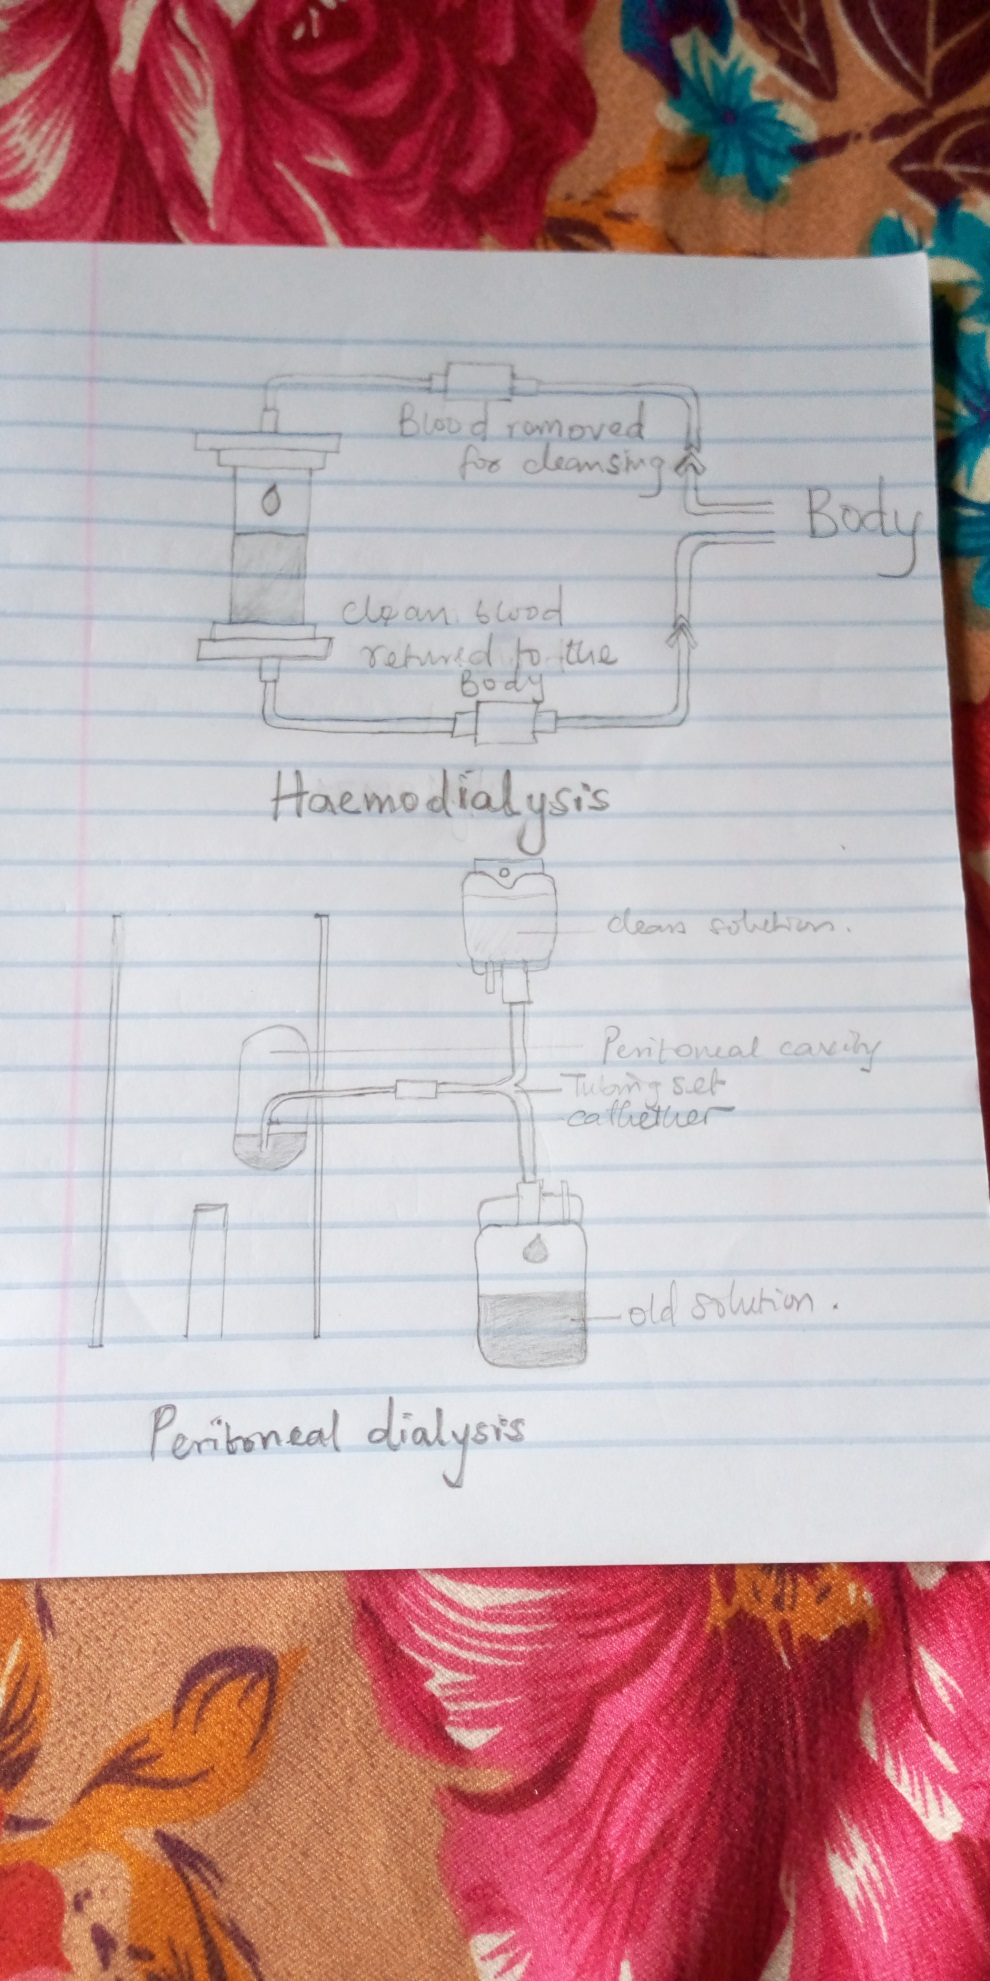 Blood removed
for cleansing
Body
clean blood
retured to the
Body
Haemodialysis
clean solution.
Peritoneal cavity
Tubing set
cathether
old solution.
Peritoneal dialysis